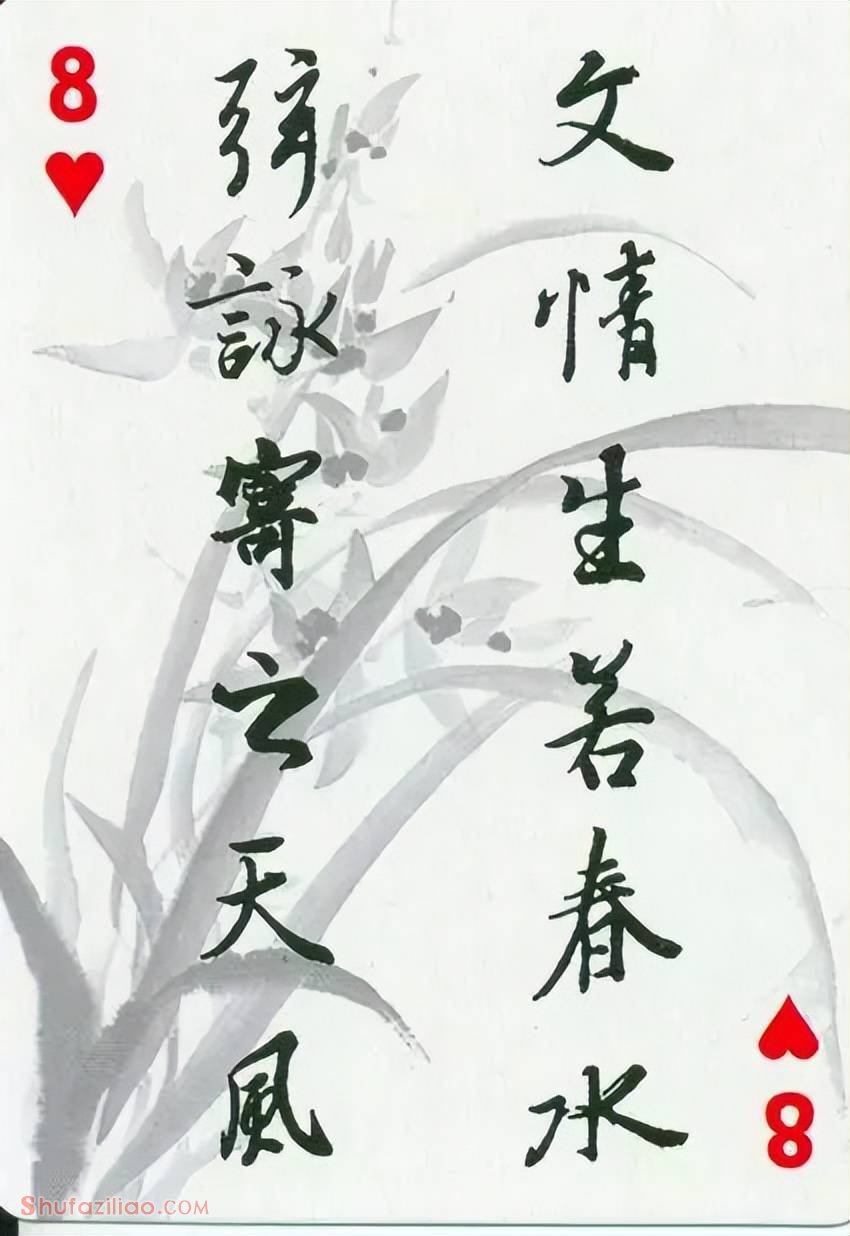 8
文情生若春水
弦詠寄之天風
8
Shufaziliao.com